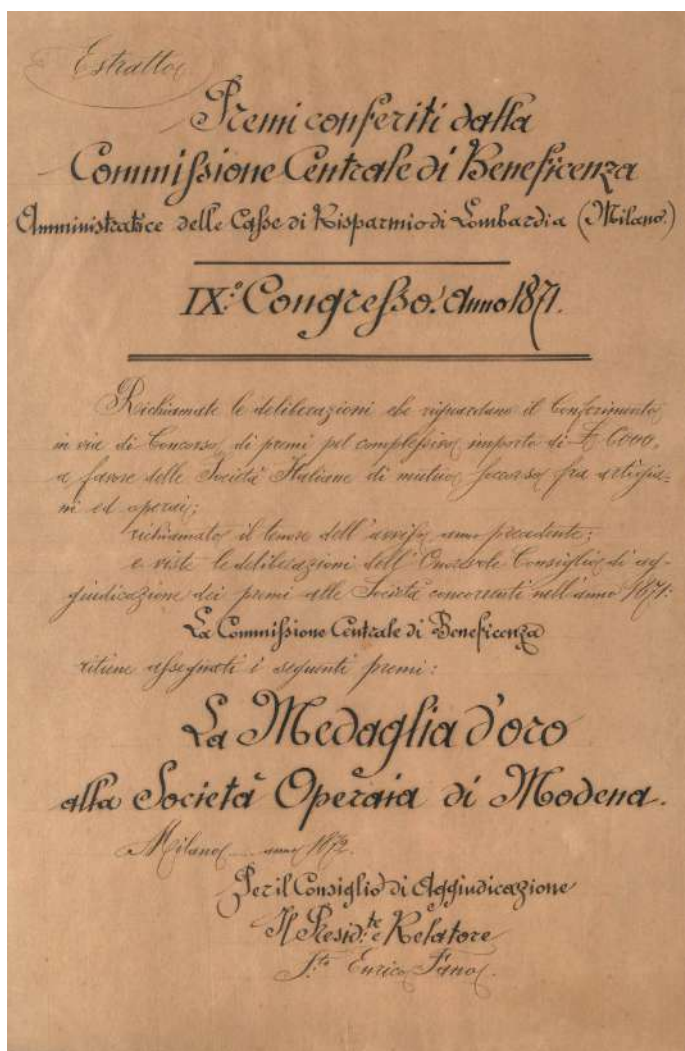 Estratto
Premi conferiti dalla
Commissione Centrale di Beneficenza
Amministratice delle Casse di Risparmio di Lombardia (Milano.)
IX.º Congresso. Anno 1871.
Richiamate le deliberazioni che riguardano il Conferimento
in via di Concorso di premi pel complessivo importo di £ 6000,
a favore delle Società Italiane di mutuo soccorso fra artigia-
ni ed operai;
richiamato il tenore dell'avviso anno precedente;
e viste le deliberazioni dell'Onorevole Consiglio di ag-
giudicazione dei premi alle Società concorrenti nell'anno 1871:
La Commissione Centrale di Beneficenza
ritiene assegnati i seguenti premi:
La Medaglia d'oro
alla Società Operaia di Modena.
Milano .... anno 1872.
Per il Consiglio di Aggiudicazione
Il Presid.te e Relatore
F.to Enrico Fano.